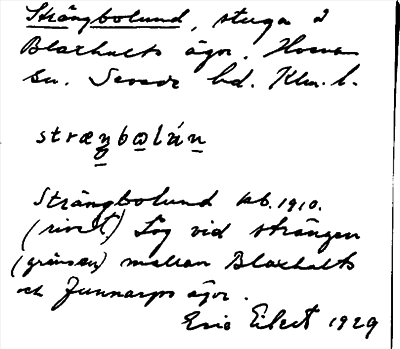 Strängbolund, stuga å
Blaxhults ägor. Hossmo
sn. Sevede hd. Klm. l.
stræŋbωlún
Strängbolund kb. 1910.
(rivet) Låg vid strängen
(gränsen) mellan Blaxhults
och Gunnarps ägor.
Eric Elert 1929